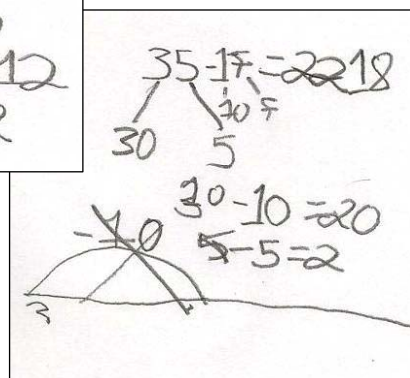 12
35-17=2218
10 7
30 5
30-10=20
5-5=2
-10
3